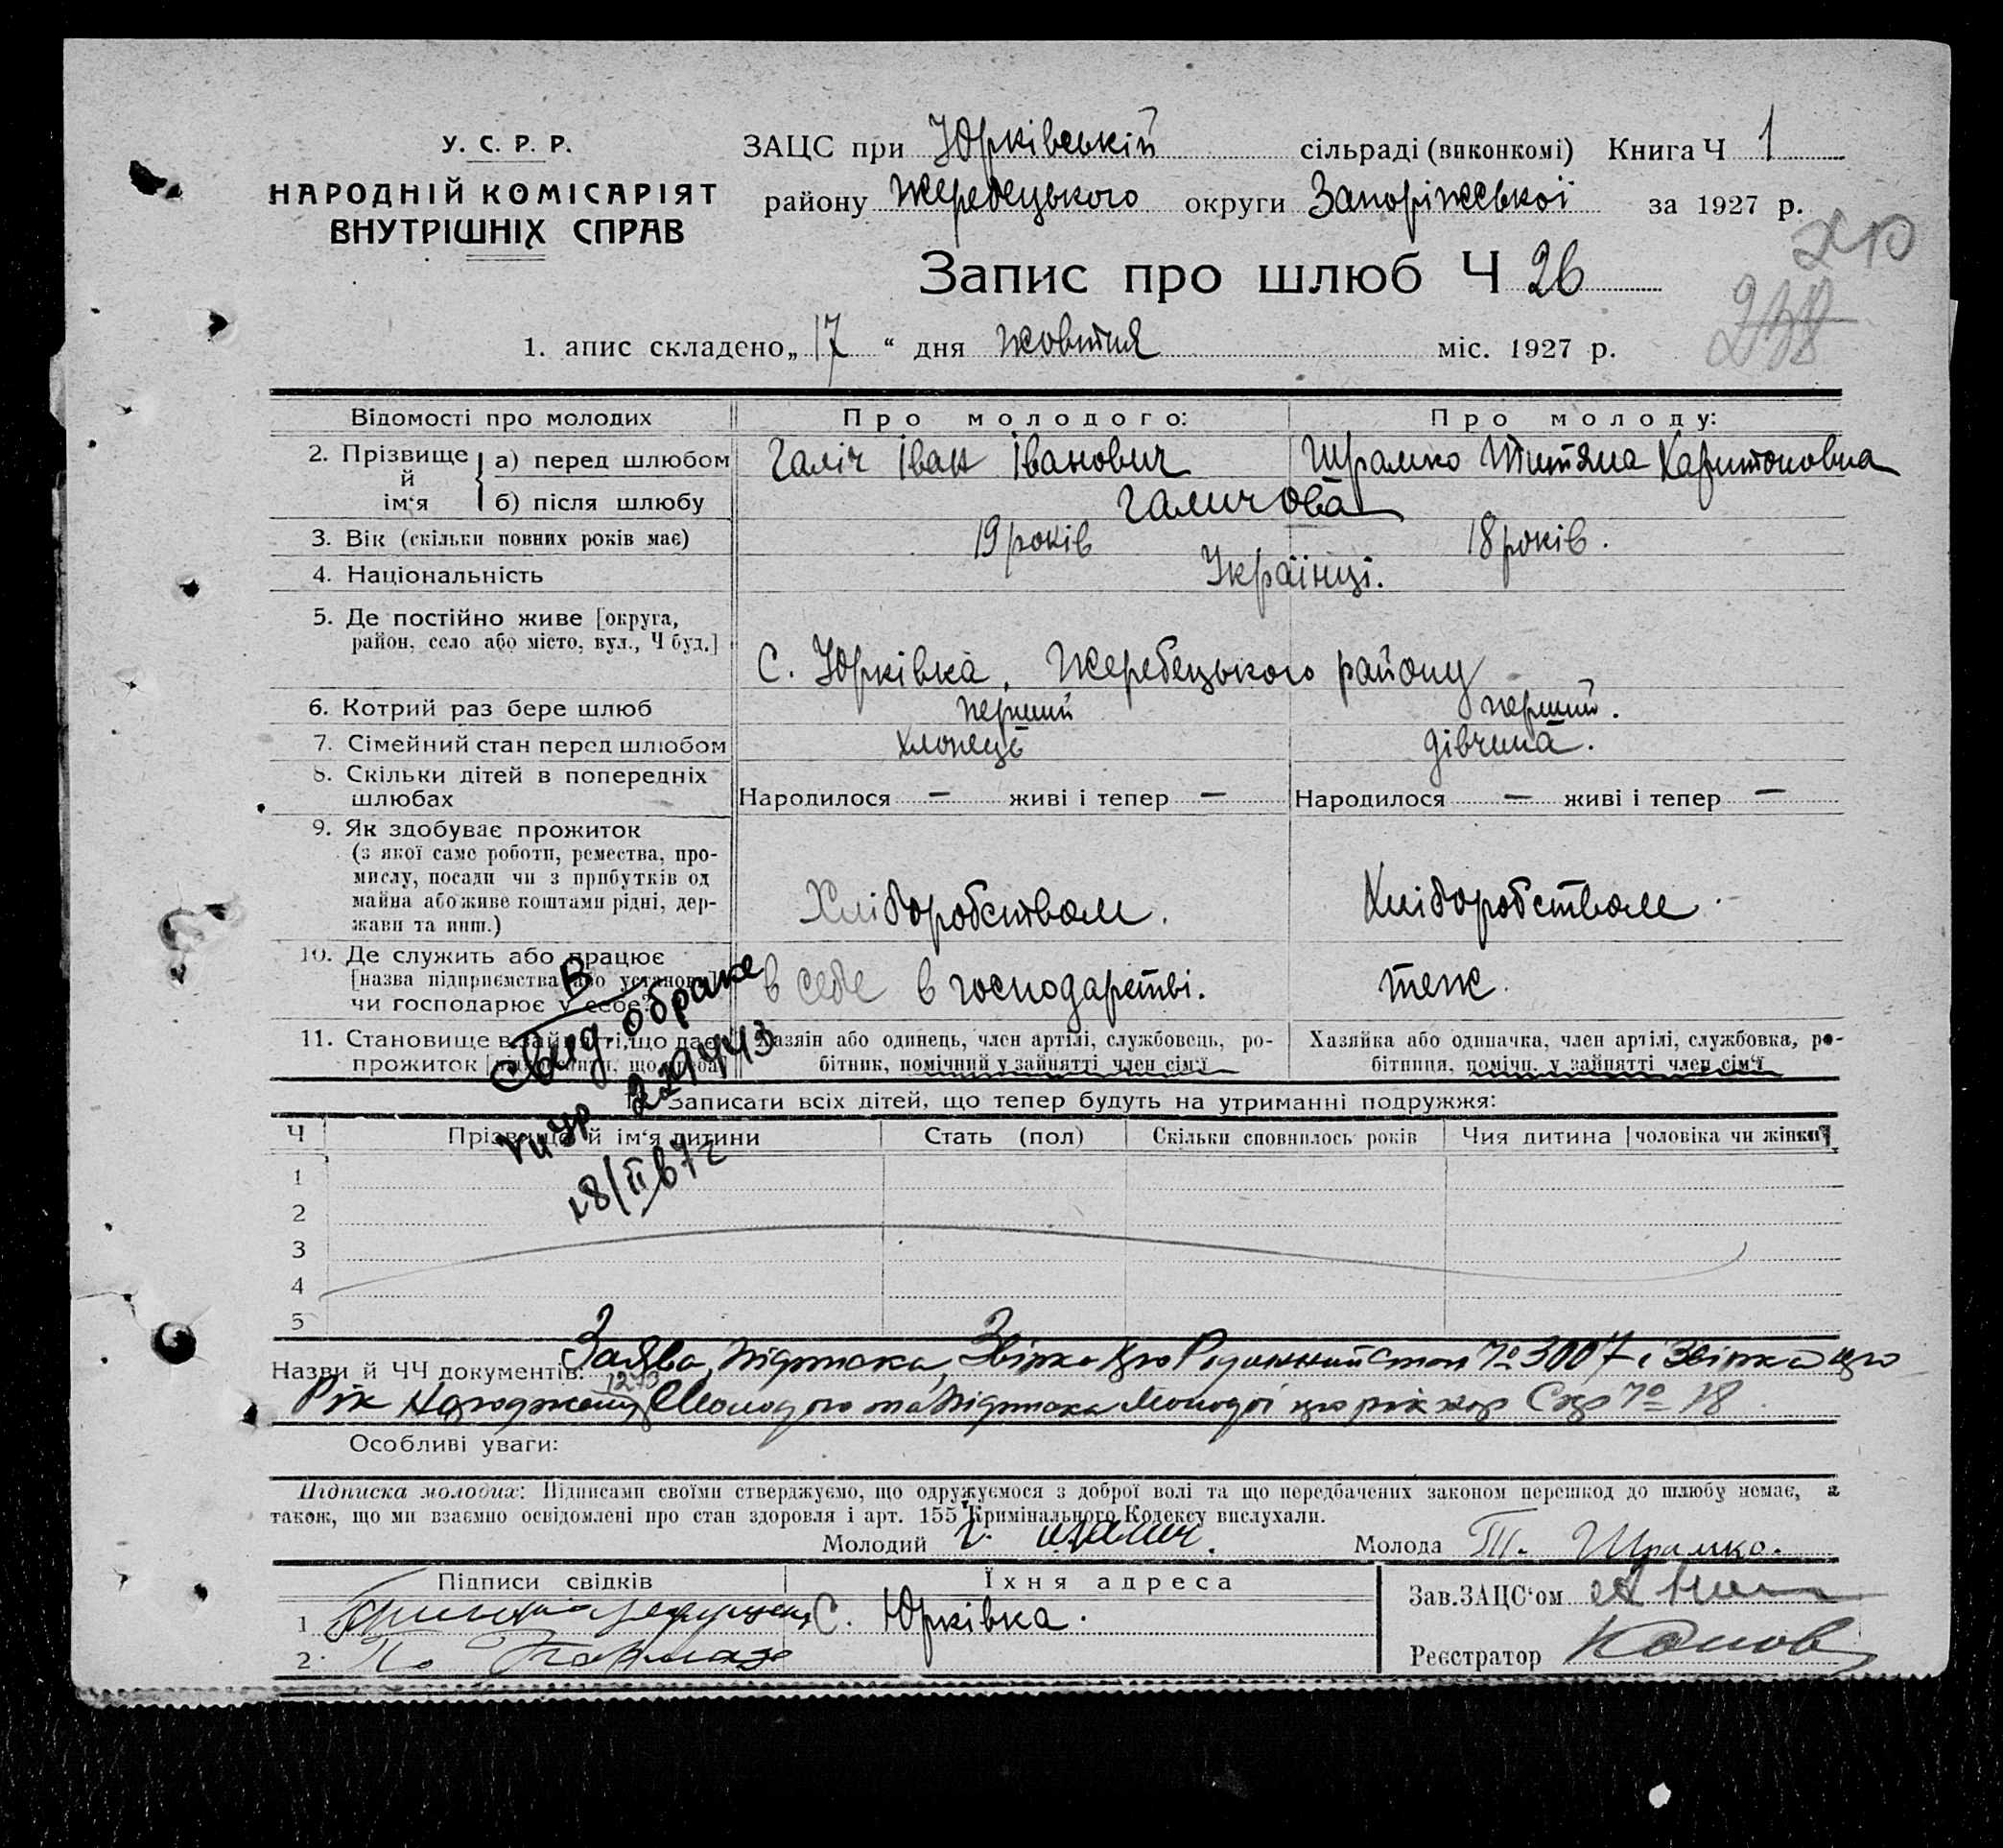 У. С. Р. Р.
НАРОДНІЙ КОМІСАРІЯТ
ВНУТРІШНІХ СПРАВ
ЗАЦС при Юрківській сільраді (виконкомі) Книга Ч 1
району Жеребецького округи Запоріжської за 1927 р.
Запис про шлюб Ч 26
1. апис складено „17“ дня жовтня міс. 1927 р.
Відомості про молодих Про молодого: Про молоду:
2. Прізвище й ім‘я а) перед шлюбом Галіч Іван Іванович Шрамко Титяна Харитоновна
б) після шлюбу Галичова
3. Вік (скільки повних років має) 19 років 18 років.
4. Національність Українці.
5. Де постійно живе [округа,
район, село або місто, вул., Ч буд.]
С. Юрківка, Жеребецького району
6. Котрий раз бере шлюб перший перший.
7. Сімейний стан перед шлюбом хлопець дівчина.
8. Скільки дітей в попередніх
шлюбах Народилося — живі і тепер — Народилося — живі і тепер —
9. Як здобуває прожиток
(з якої саме роботи, ремества, про-
мислу, посади чи з прибутків од
майна або живе коштами рідні, дер-
жави та инш.)
Хліборобством. Хліборобством
10. Де служить або працює
[назва підприємства або установи]
чи господарює у себе?
в себе в господарстві. теж.
11. Становище в зайнятті, що дає
прожиток
Хазяін або одинець, член артілі, службовець, ро-
бітник, помічний у зайнятті член сім‘ї
Хазяйка або одиначка, член артілі, службовка, ро-
бітниця, помічн. у зайнятті член сім‘ї
В
Свид. о браке
28/II 67г
Записати всіх дітей, що тепер будуть на утриманні подружжя:
Ч Прізвище й ім‘я дитини Стать (пол) Скільки сповнилось років Чия дитина [чоловіка чи жінки]
1
2
3
4
5
Назви й ЧЧ документів: Заява, підписка, Звірка про Родинний стан № 3007 і Звірка про
Рік 1273 Молодого та підписка Молодої про рік № 78
Особливі уваги:
Підписка молодих: Підписами своїми стверджуємо, що одружуємося з доброї волі та що передбачених законом перешкод до шлюбу немає, а
також, що ми взаємно освідомлені про стан здоровля і арт. 155 Кримінального Кодексу вислухали.
Молодий Молода Т. Шрамко.
Підписи свідків Їхня адреса
1 С. Юрківка.
2.
Зав. ЗАЦС‘ом
Реєстратор